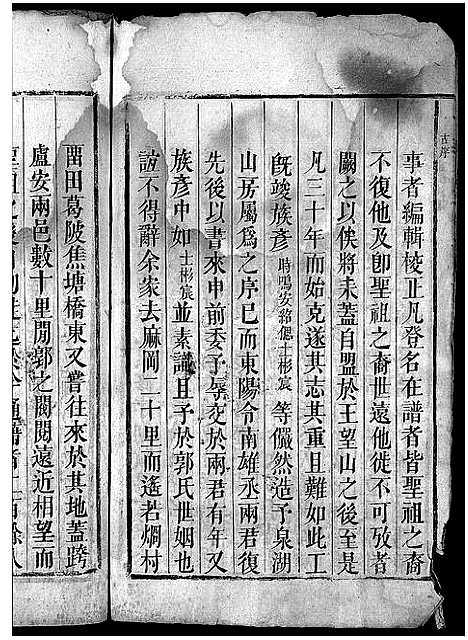 古序
事者編輯梭止凡登名在譜者皆聖祖之裔
不復他及卽聖祖之裔世遠他徙不可攷者
闕之以俟將未蓋自盟於王望山之後至是
凡三十年而始克遂其志其重且難如此工
旣竣族彥時鳴安紹偲士彬宸等儼然造予泉湖
山房屬爲之序已而東陽令南雄丞兩君復
先後以書來申前委予辱交於兩君有年又
族彥中如士彬宸並素識且予於郭氏世姻也
誼不得辭余家去麻岡二十里而遙若烱村
畱田葛陂焦塘橋東又嘗往來於其地蓋跨
盧安兩邑數十里閒郭之閥閱遠近相望而